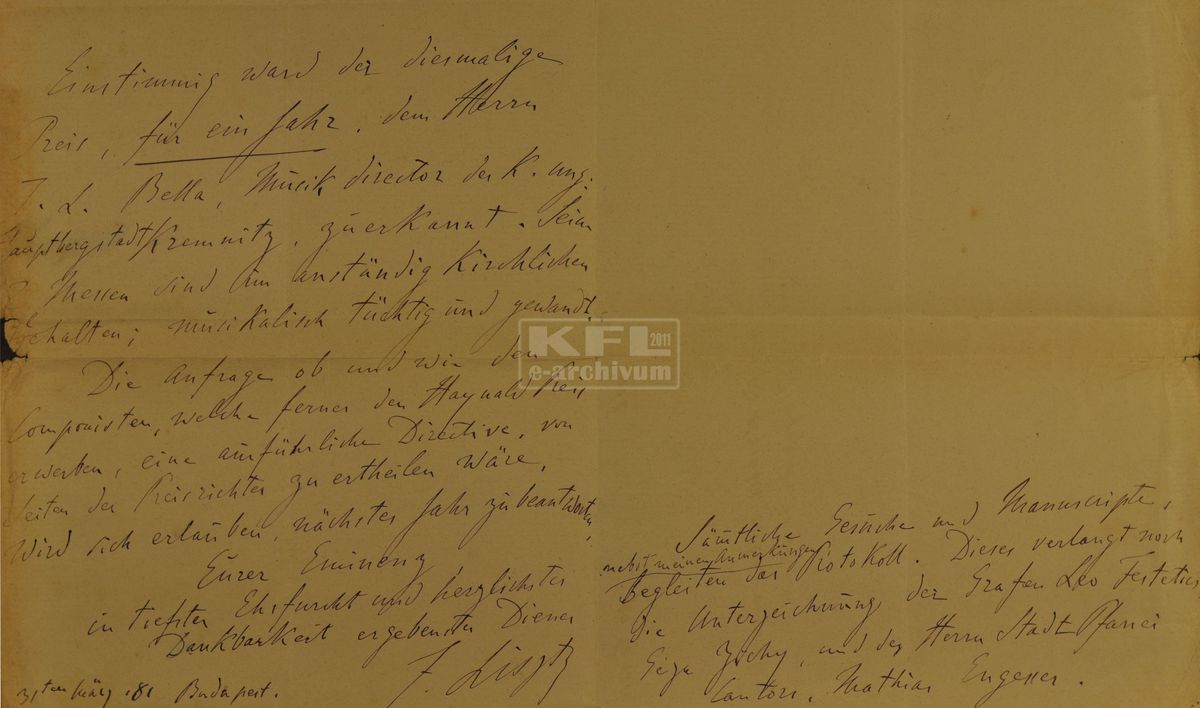 Einstimmig ward der diesmalige
Preis, für ein Jahr, dem Herrn
J. L. Bella, Musikdirector der K. ung.
Hauptbergstadt Kremnitz, zuerkannt. Seine
Messen sind im anständig Kirchlichen
gehalten; musikalisch tüchtig und gewandt.
Die Anfrage ob und wie den
Componisten, welche ferner den Haynald Preis
erwerben, eine ausführliche Directive, von
Seiten der Preisrichter zu ertheilen wäre,
wird sich erlauben, nächstes Jahr zu beantworten,
Eurer Eminenz
in tiefster Ehrfurcht und herzlichster
Dankbarkeit ergebenster Diener
F. Liszt
31ten März, 81 Budapest.
Sämtliche Gesuche und Manuscripte,
nebst meinen Anmerkungen
begleiten das Protokoll. Dieses verlangt noch
die Unterzeichnung der Grafen Leo Festetics
Géza Zichy, und des Herrn Stadt Pfarrei
Cantors, Mathias Engesser.
KFL 2011
e-archivum